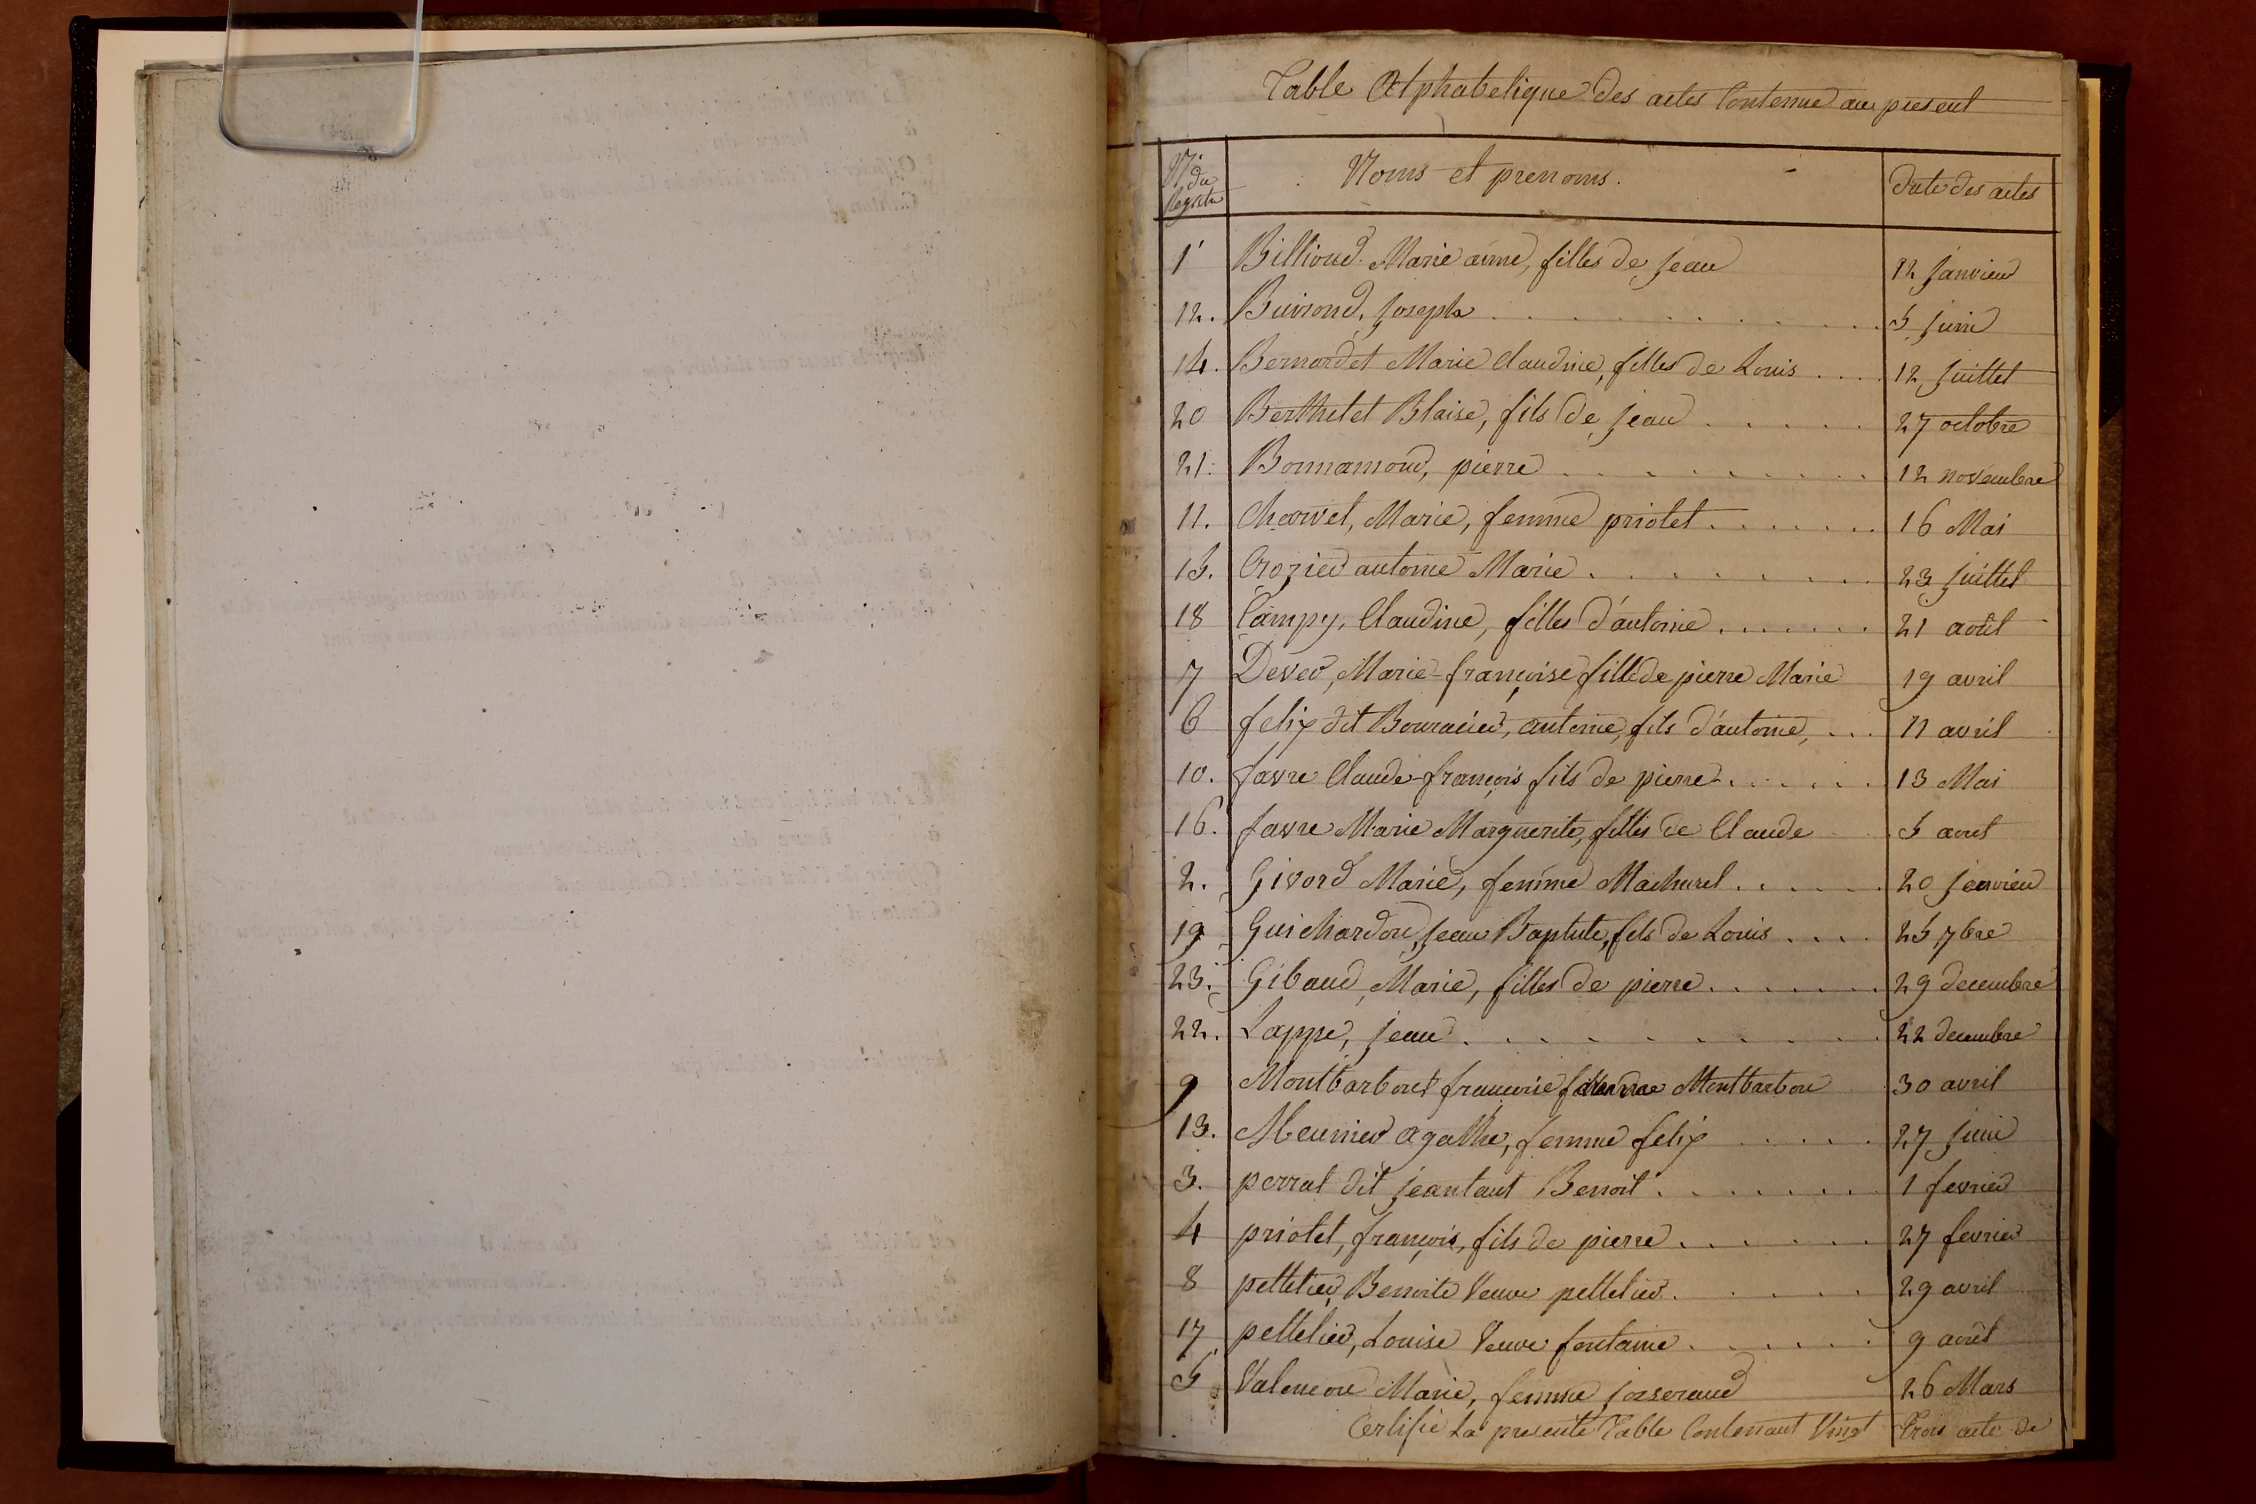 Table Alphabetique des actes Contenue au present
N.° du Registre
Noms et prenoms.
date des actes
1 Billioud Marie aimé, filles de jean 12 janvier
12. Buirond, joseph 5 juin
14. Bernardet Marie Claudine, filles de Louis 12 juillet
20 Berthelet Blaise, fils de jean 27 octobre
21. Bonnamour, pierre 12 novembre
11. Charvet, Marie, femme priolet 16 Mai
15. Crozier antoine Marie 23 juillet
18 Campy, Claudine, filles d'antoine 21 août
7 Dever, Marie-françoise fille de pierre Marie 19 avril
6 felix dit Bouracier, antoine, fils d'antoine, 11 avril
10. favre Claude-françois fils de pierre 13 Mai
16. favre Marie Marguerite, filles de Claude 5 aout
2. Givord Marie, femme Machurel 20 janvier
19 Guichardon, jean Baptiste, fils de Louis 25 7bre
23. Gibaud, Marie, filles de pierre 29 decembre
22. Lappe, jean 22 decembre
9 Montbarbon françoise Montbarbon 30 avril
13. Meunier agathe, femme felix 27 juin
3. perrat dit jeantaut Benoit 1 fevrier
4 priolet, françois, fils de pierre 27 fevrier
8 pelletier Benoite Veuve pelletier 29 avril
17 pelletier, Louise Veuve fontaine 9 août
5 Valencon Marie, femme josserand 26 Mars
Certifié La presente Table Contenant Vingt Trois acte de